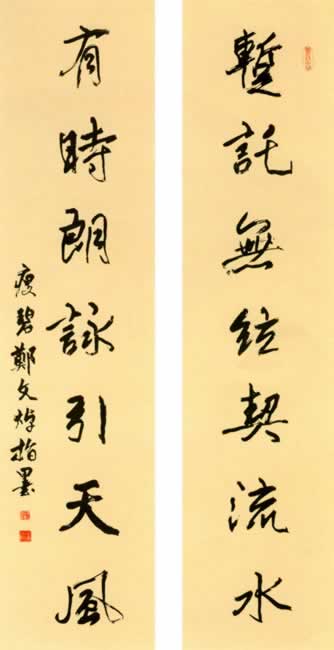 暫託無絃契流水
有時朗詠引天風
瘦碧鄭文焯指墨